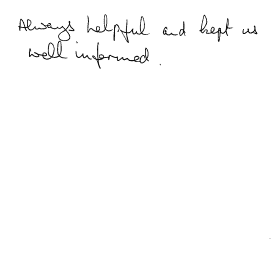 Always helpful and kept us
well informed.